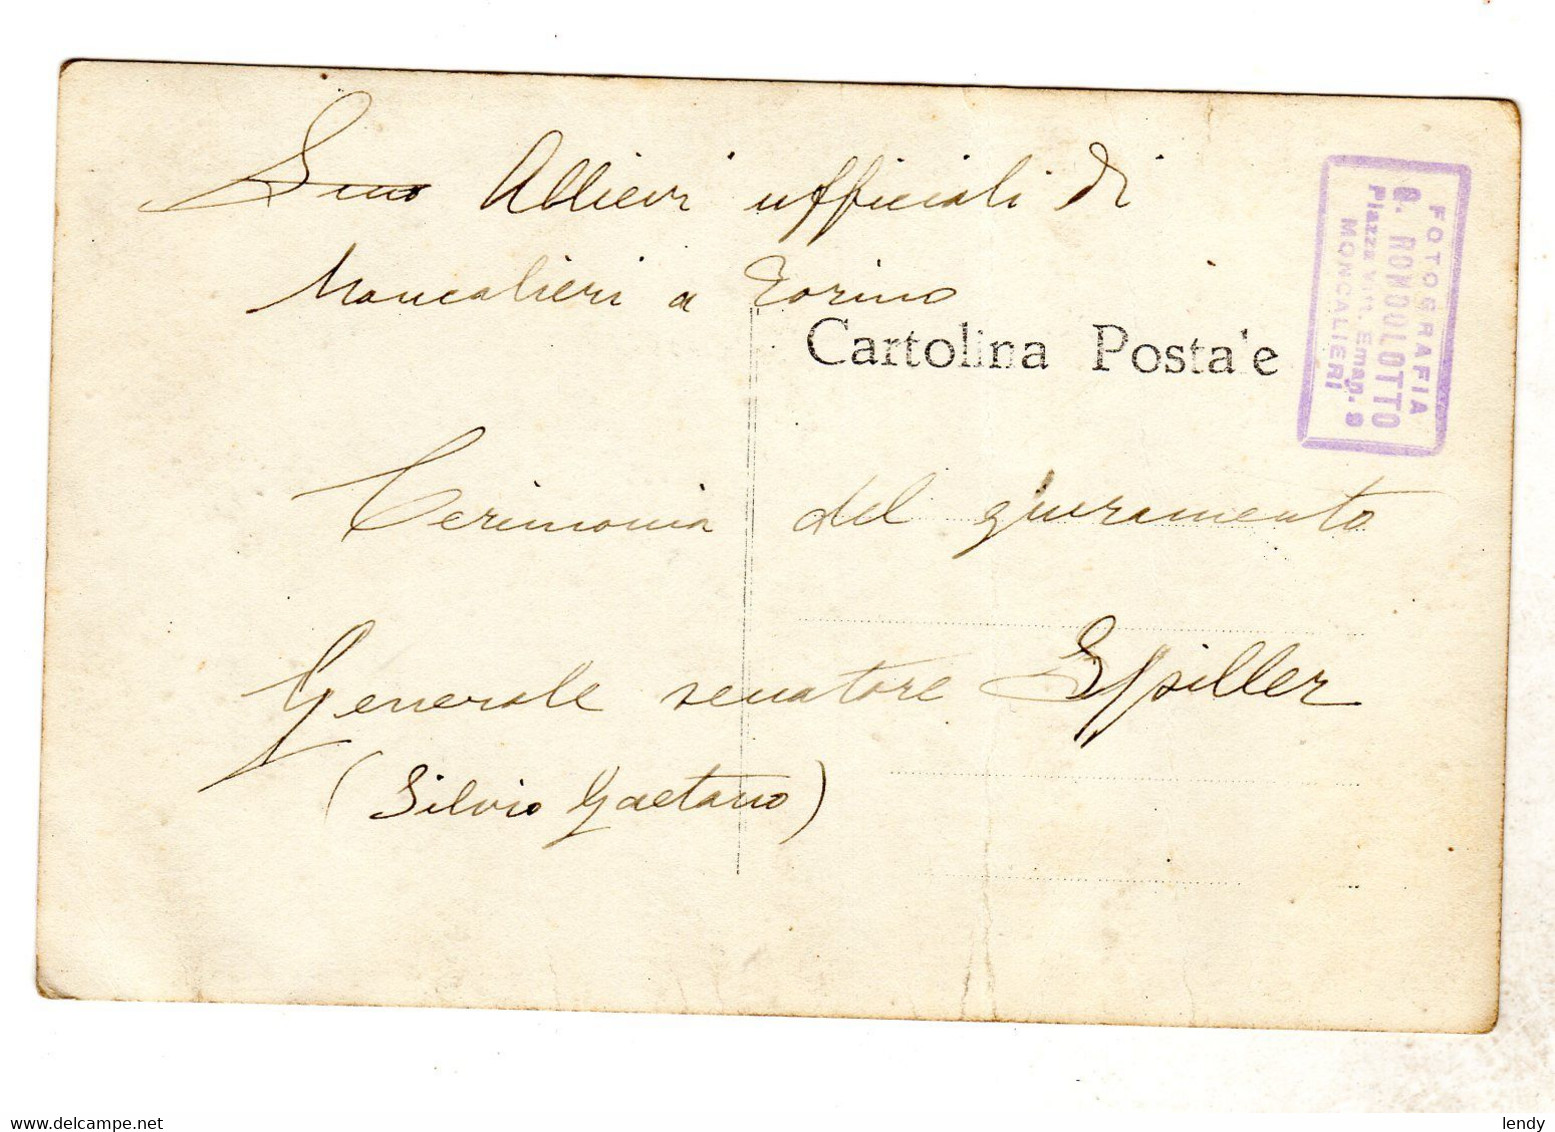 Allievi ufficiali di
Moncalieri a Torino
Cartolina Posta'e
Cerimonia del giuramento
Generale senatore Spiller
(Silvio Gaetano)
FOTOGRAFIA
RONDOLOTTO
Piazza Vitt. Eman. 9
MONCALIERI
www.delcampe.net
lendy